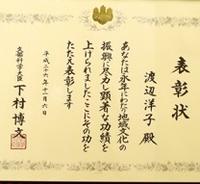 表彰状
渡辺洋子殿
あなたは永年にわたり地域文化の
振興に尽力し顕著な功績を
上げられましたここにその功を
たたえ表彰します
平成二十六年十一月六日
文部科学大臣 下村博文